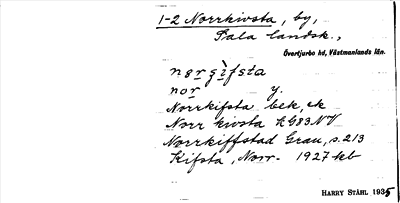 1-2 Norrkivsta, by,
Sala landsk.,
Övertjurbo hd, Västmanlands län.
norgifsta
nor y.
Norrkifsta bek, ek
Norr kivsta
Norrkiffstad Grau, s. 213
Kifsta, Norr- 1927 kb
HARRY STÅHL 1935